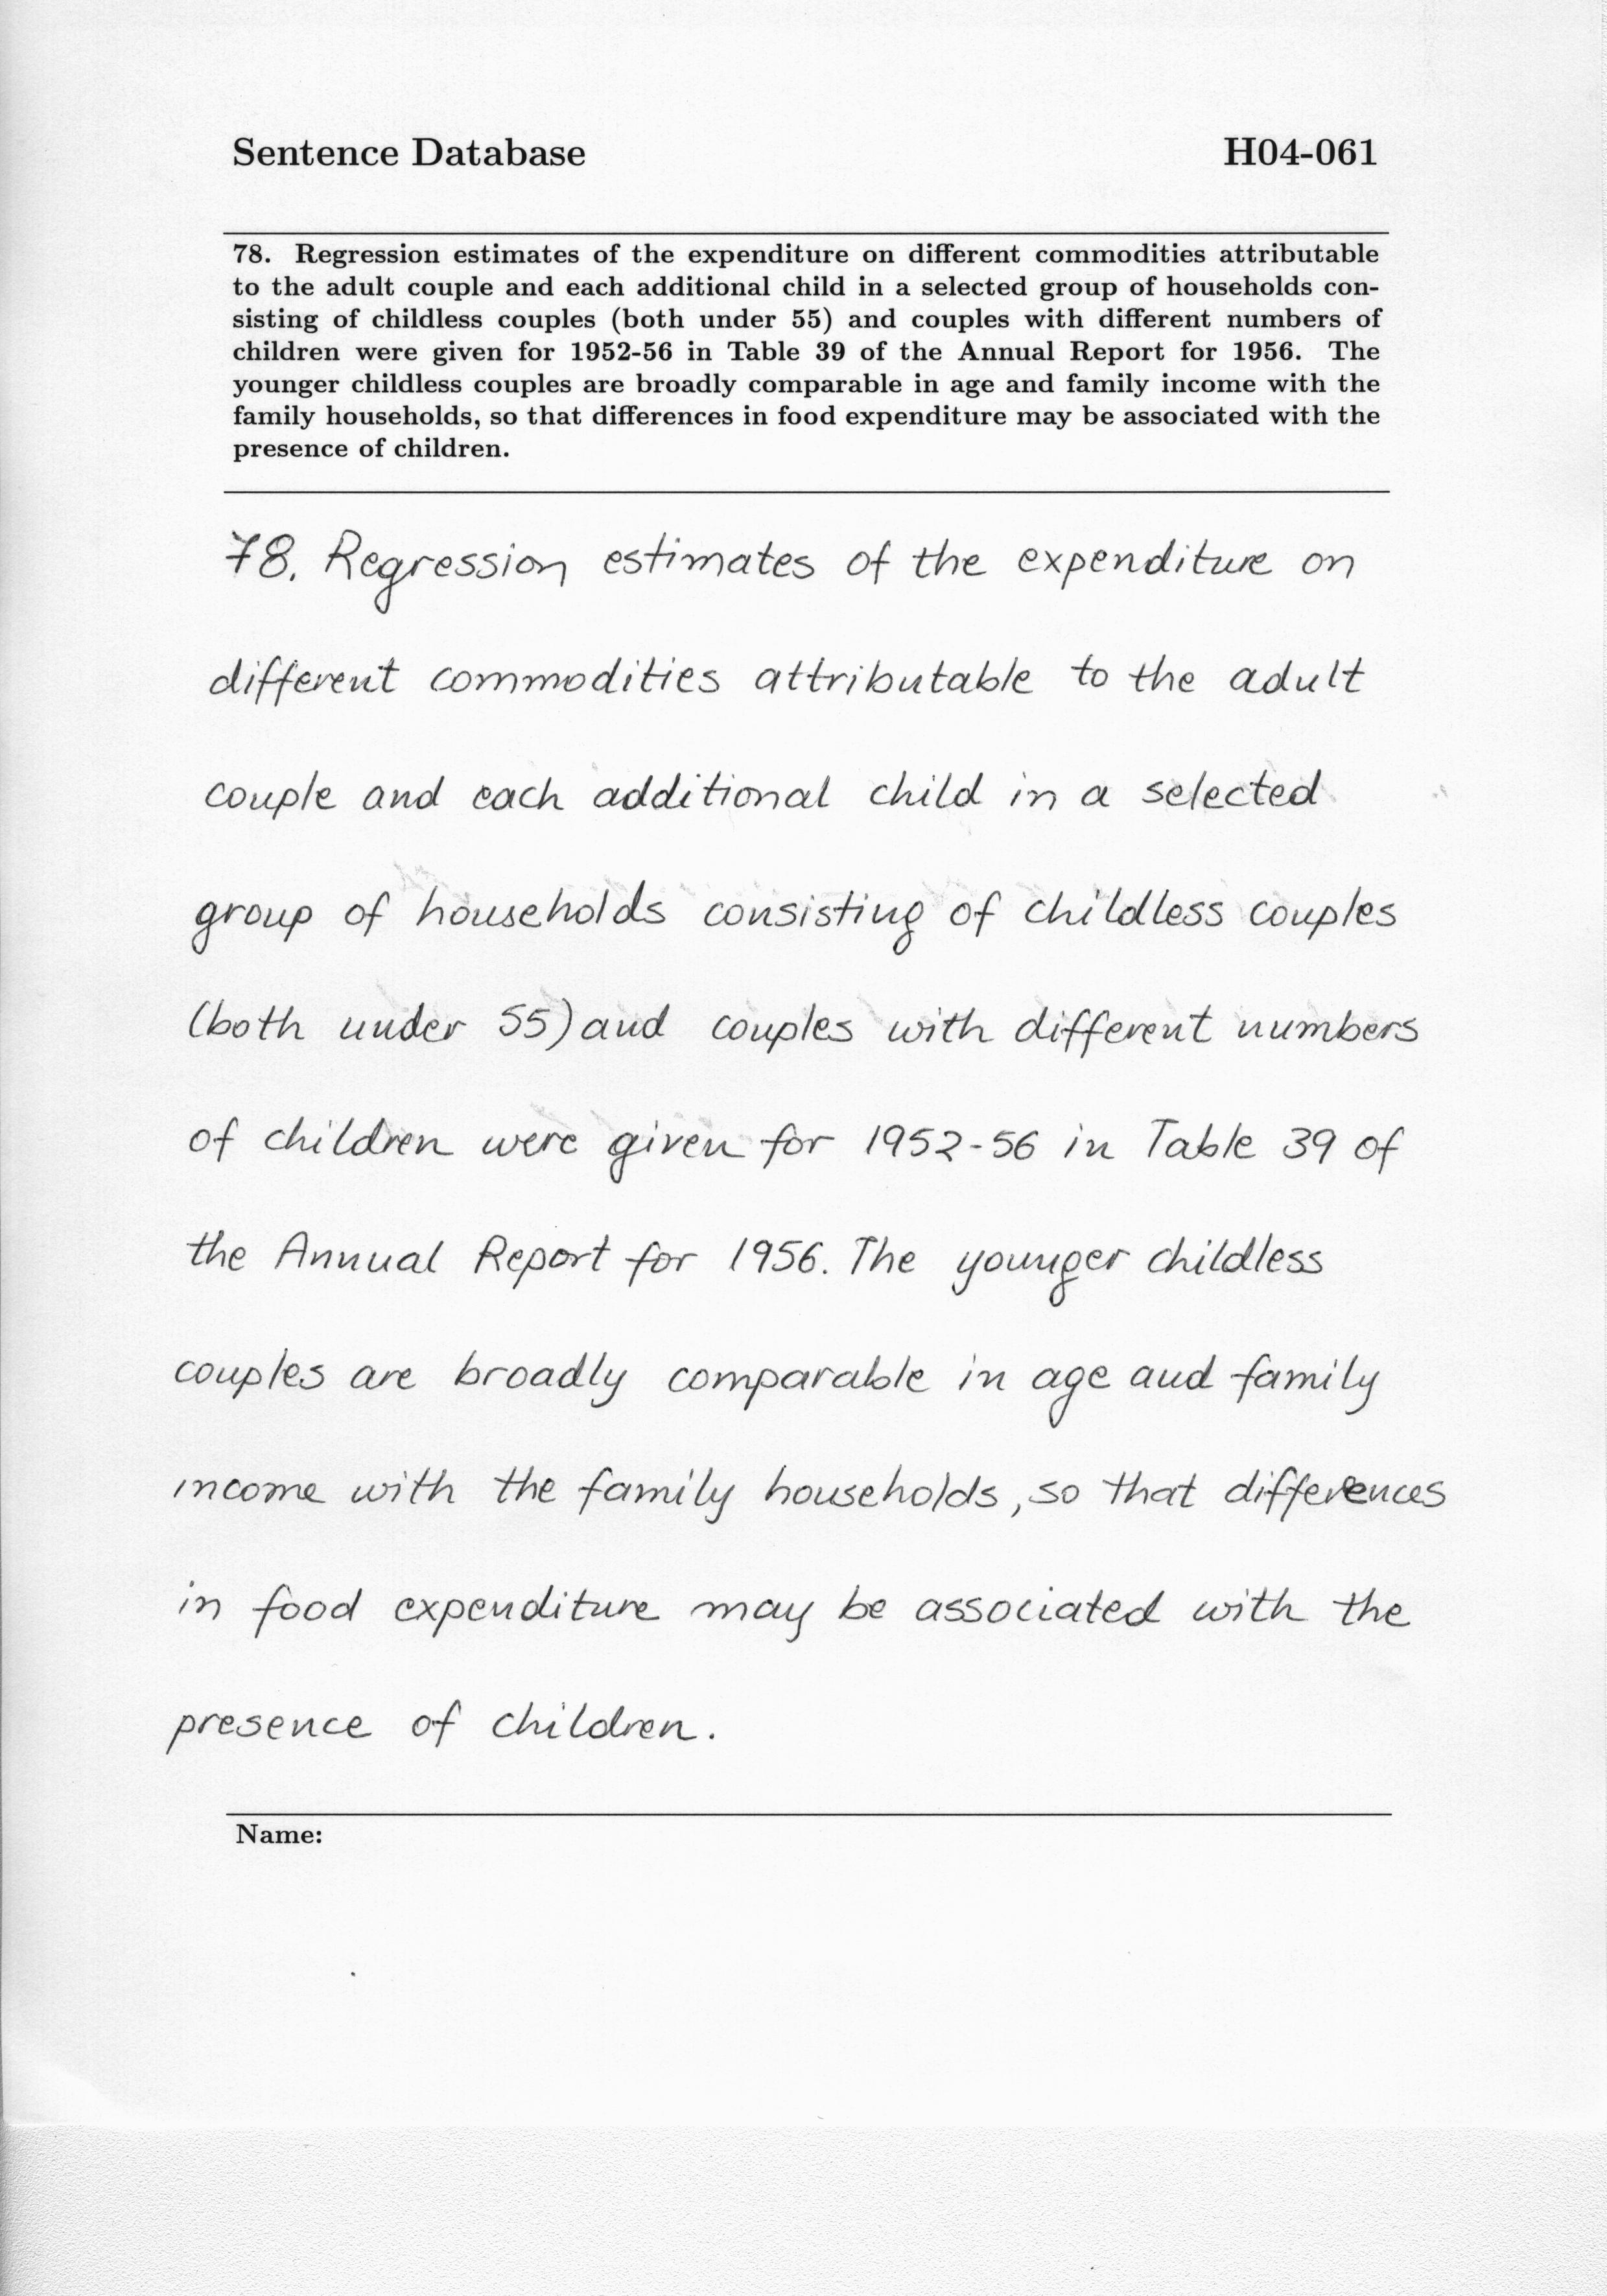 Sentence Database H04-061
78. Regression estimates of the expenditure on different commodities attributable
to the adult couple and each additional child in a selected group of households con-
sisting of childless couples (both under 55) and couples with different numbers of
children were given for 1952-56 in Table 39 of the Annual Report for 1956. The
younger childless couples are broadly comparable in age and family income with the
family households, so that differences in food expenditure may be associated with the
presence of children.
78. Regression estimates of the expenditure on
different commodities attributable to the adult
couple and each additional child in a selected
group of households consisting of childless couples
(both under 55) and couples with different numbers
of children were given for 1952-56 in Table 39 of
the Annual Report for 1956. The younger childless
couples are broadly comparable in age and family
income with the family households, so that differences
in food expenditure may be associated with the
presence of children.
Name: